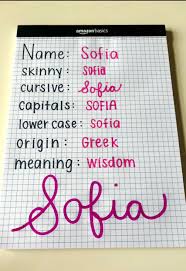 amazonbasics
Name: Sofia
skinny: Sofia
cursive: Sofia
capitals: SOFIA
lower case: Sofia
origin: Greek
meaning: Wisdom
Sofia